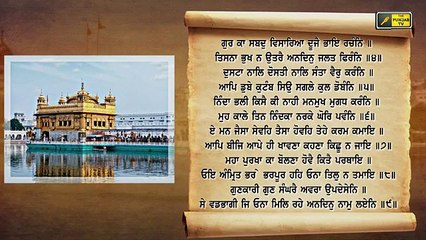 THE
PUNJAB
TV
ਗੁਰ ਕਾ ਸਬਦੁ ਵਿਸਾਰਿਆ ਦੂਜੈ ਭਾਇ ਰਚੰਨਿ ॥
ਤਿਸਨਾ ਭੁਖ ਨ ਉਤਰੈ ਅਨਦਿਨੁ ਜਲਤ ਫਿਰੰਨਿ ॥੪॥
ਦੁਸਟਾ ਨਾਲਿ ਦੋਸਤੀ ਨਾਲਿ ਸੰਤਾ ਵੈਰੁ ਕਰੰਨਿ ॥
ਆਪਿ ਡੁਬੇ ਕੁਟੰਬ ਸਿਉ ਸਗਲੇ ਕੁਲ ਡੋਬੰਨਿ ॥੫॥
ਨਿੰਦਾ ਭਲੀ ਕਿਸੈ ਕੀ ਨਾਹੀ ਮਨਮੁਖ ਮੁਗਧ ਕਰੰਨਿ ॥
ਮੁਹ ਕਾਲੇ ਤਿਨ ਨਿੰਦਕਾ ਨਰਕੇ ਘੋਰਿ ਪਵੰਨਿ ॥੬॥
ਏ ਮਨ ਜੈਸਾ ਸੇਵਹਿ ਤੈਸਾ ਹੋਵਹਿ ਤੇਹੇ ਕਰਮ ਕਮਾਇ ॥
ਆਪਿ ਬੀਜਿ ਆਪੇ ਹੀ ਖਾਵਣਾ ਕਹਣਾ ਕਿਛੂ ਨ ਜਾਇ ॥੭॥
ਮਹਾ ਪੁਰਖਾ ਕਾ ਬੋਲਣਾ ਹੋਵੈ ਕਿਤੈ ਪਰਥਾਇ ॥
ਓਇ ਅੰਮ੍ਰਿਤ ਭਰੇ ਭਰਪੂਰ ਹਹਿ ਓਨਾ ਤਿਲੁ ਨ ਤਮਾਇ ॥੮॥
ਗੁਣਕਾਰੀ ਗੁਣ ਸੰਘਰੈ ਅਵਰਾ ਉਪਦੇਸੇਨਿ ॥
ਸੇ ਵਡਭਾਗੀ ਜਿ ਓਨਾ ਮਿਲਿ ਰਹੇ ਅਨਦਿਨੁ ਨਾਮੁ ਲਏਨਿ ॥੯॥